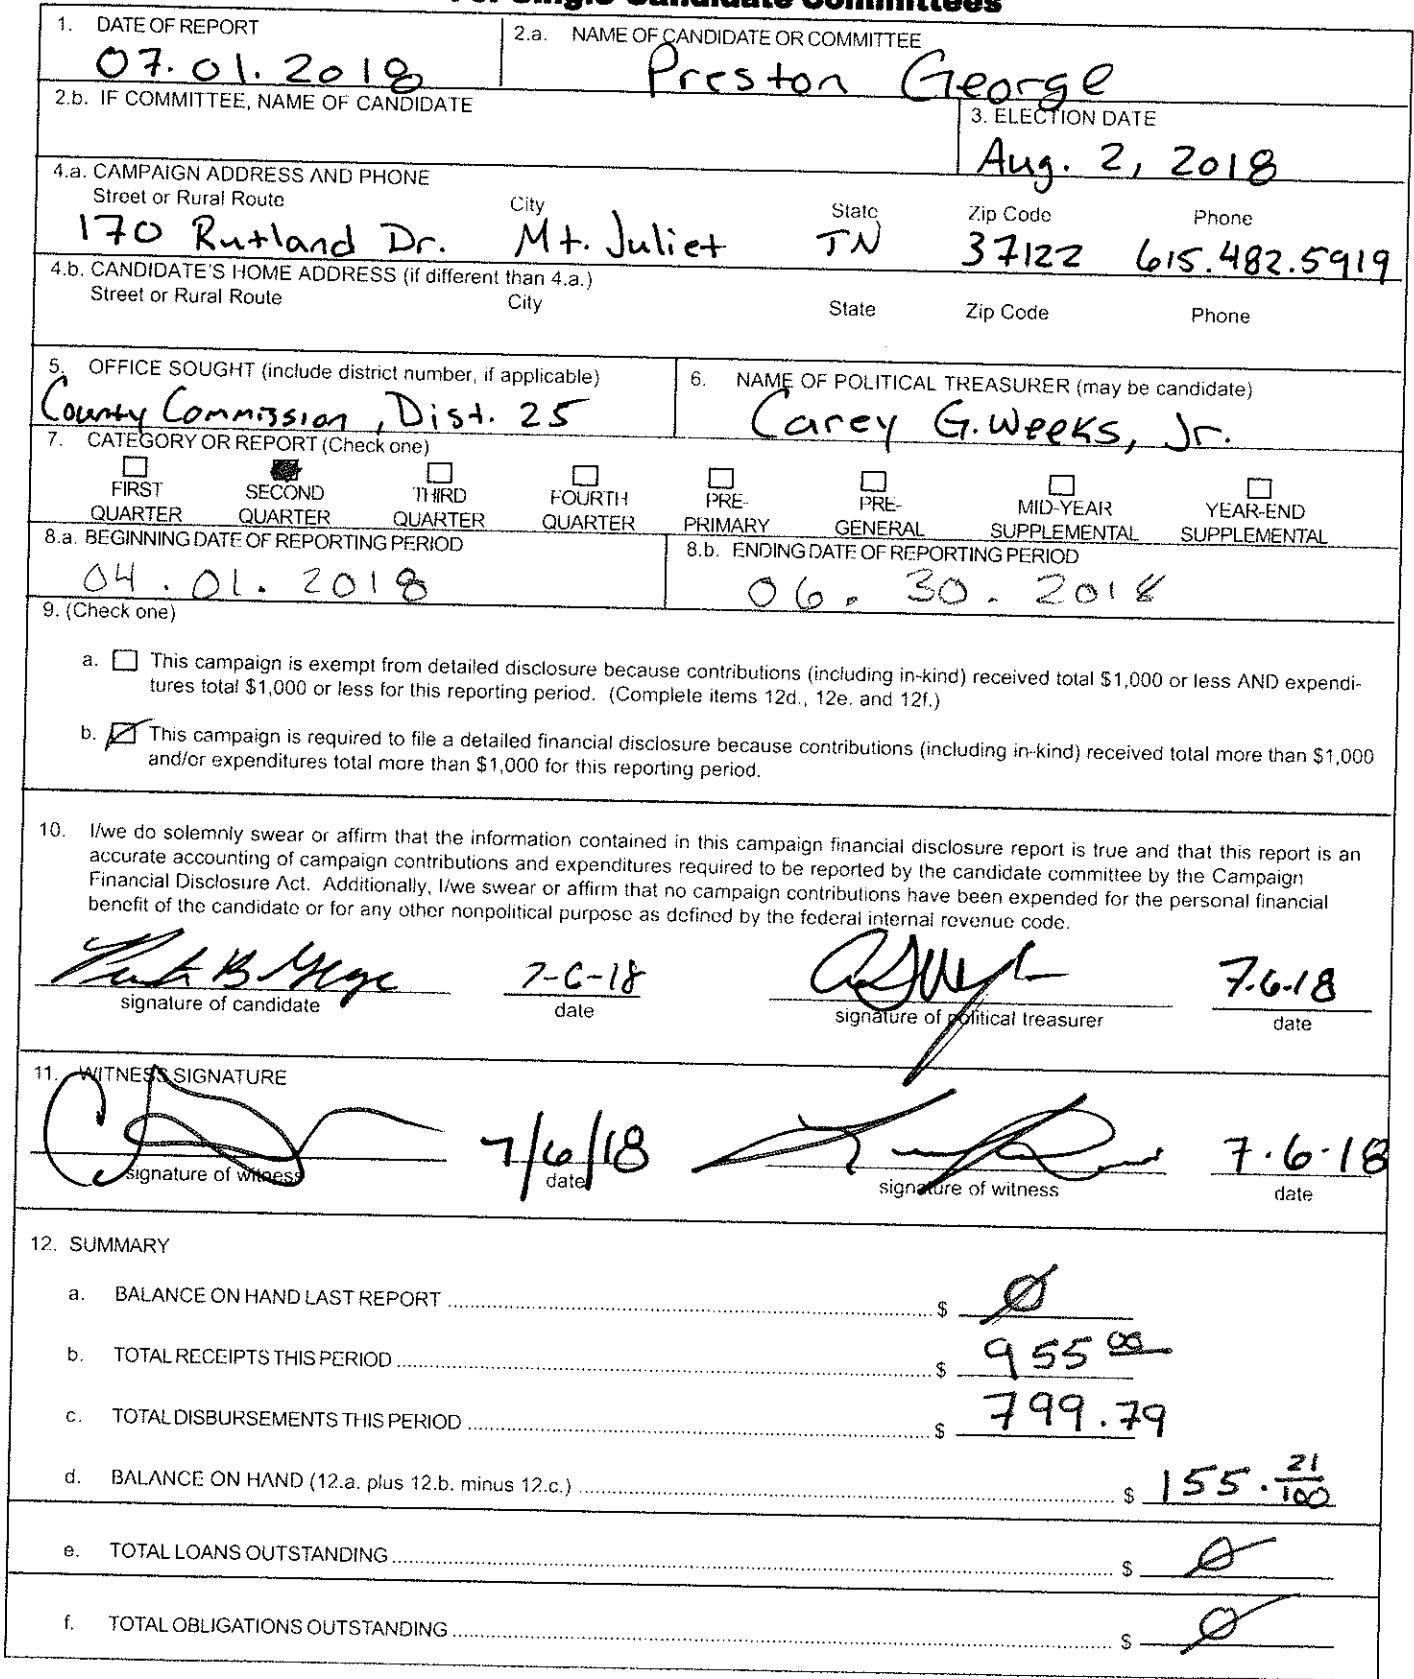 For Single Candidate Committees
1. DATE OF REPORT
07.01.2018
2.a. NAME OF CANDIDATE OR COMMITTEE
Preston George
2.b. IF COMMITTEE, NAME OF CANDIDATE
3. ELECTION DATE
Aug. 2, 2018
4.a. CAMPAIGN ADDRESS AND PHONE
Street or Rural Route City State Zip Code Phone
170 Rutland Dr. Mt. Juliet TN 37122 615.482.5919
4.b. CANDIDATE'S HOME ADDRESS (if different than 4.a.)
Street or Rural Route City State Zip Code Phone
5. OFFICE SOUGHT (include district number, if applicable)
County Commission, Dist. 25
6. NAME OF POLITICAL TREASURER (may be candidate)
Carey G. Weeks, Jr.
7. CATEGORY OR REPORT (Check one)
FIRST QUARTER
SECOND QUARTER
THIRD QUARTER
FOURTH QUARTER
PRE-PRIMARY
PRE-GENERAL
MID-YEAR SUPPLEMENTAL
YEAR-END SUPPLEMENTAL
8.a. BEGINNING DATE OF REPORTING PERIOD
04.01.2018
8.b. ENDING DATE OF REPORTING PERIOD
06.30.2018
9. (Check one)
a. This campaign is exempt from detailed disclosure because contributions (including in-kind) received total $1,000 or less AND expendi-
tures total $1,000 or less for this reporting period. (Complete items 12d., 12e. and 12f.)
b. This campaign is required to file a detailed financial disclosure because contributions (including in-kind) received total more than $1,000
and/or expenditures total more than $1,000 for this reporting period.
10. I/we do solemnly swear or affirm that the information contained in this campaign financial disclosure report is true and that this report is an
accurate accounting of campaign contributions and expenditures required to be reported by the candidate committee by the Campaign
Financial Disclosure Act. Additionally, I/we swear or affirm that no campaign contributions have been expended for the personal financial
benefit of the candidate or for any other nonpolitical purpose as defined by the federal internal revenue code.
7-6-18 7.6.18
signature of candidate date signature of political treasurer date
11. WITNESS SIGNATURE
7/6/18 7.6.18
signature of witness date signature of witness date
12. SUMMARY
a. BALANCE ON HAND LAST REPORT $ Ø
b. TOTAL RECEIPTS THIS PERIOD $ 955 00
c. TOTAL DISBURSEMENTS THIS PERIOD $ 799.79
d. BALANCE ON HAND (12.a. plus 12.b. minus 12.c.) $ 155.21/100
e. TOTAL LOANS OUTSTANDING $ Ø
f. TOTAL OBLIGATIONS OUTSTANDING $ Ø